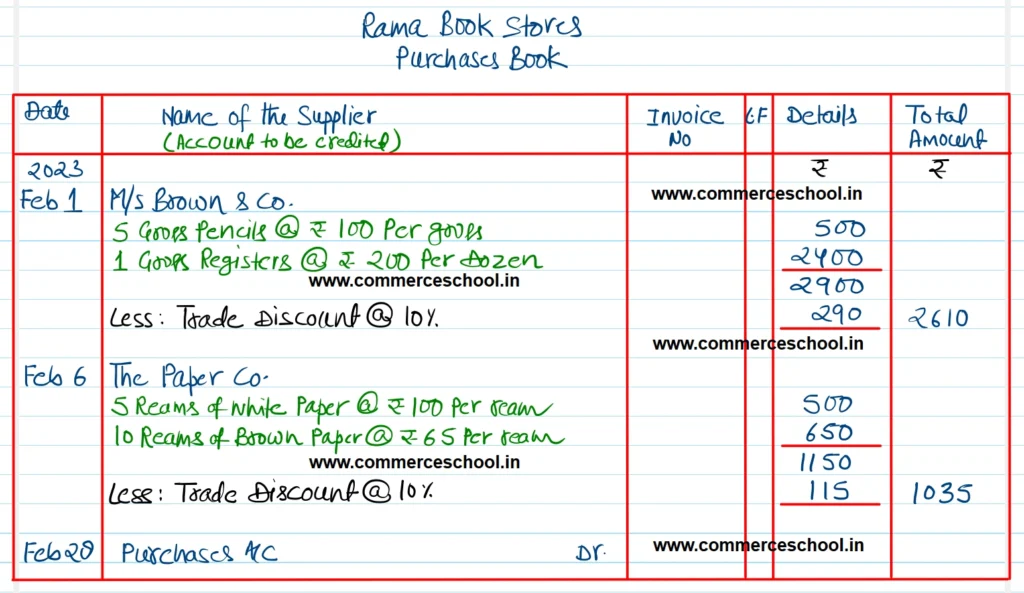 Rama Book Stores
Purchases Book
Date Name of the Supplier Invoice L.F Details Total
(Account to be credited) No Amount
2023 ₹ ₹
www.commerceschool.in
Feb 1 M/s Brown & Co.
5 Gross Pencils @ ₹ 100 Per gross 500
1 Gross Registers @ ₹ 200 Per Dozen 2400
www.commerceschool.in 2900
Less: Trade Discount @ 10% 290 2610
www.commerceschool.in
Feb 6 The Paper Co.
5 Reams of White Paper @ ₹100 Per ream 500
10 Reams of Brown Paper @ ₹65 Per ream 650
www.commerceschool.in 1150
Less: Trade Discount @ 10% 115 1035
Feb 28 Purchases A/C Dr. www.commerceschool.in